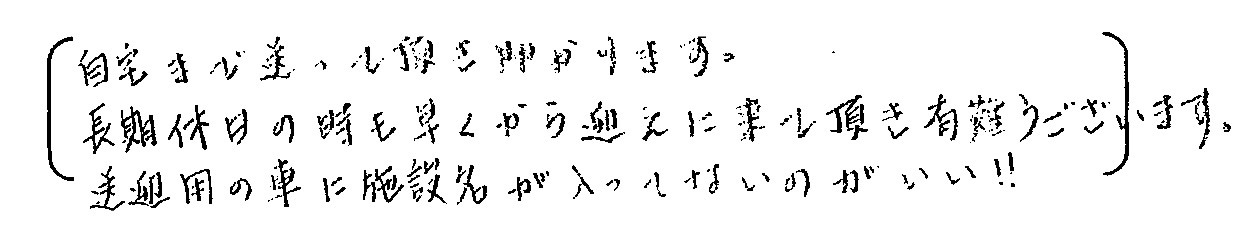 自宅まで送って頂き助かります。
長期休日の時も早くから迎えに来て頂き有難うございます。
送迎用の車に施設名が入ってないのがいい!!